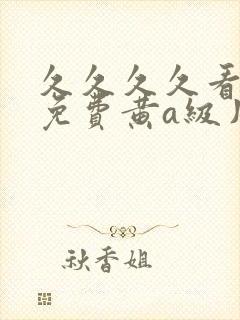 久久久久看
免費黄a級
秋香姐